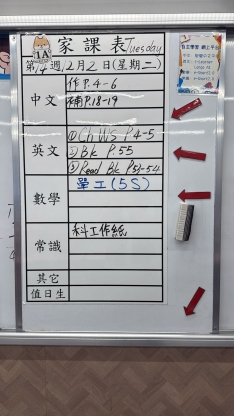 1A
家課表 Tuesday
第14週12月2日(星期二)
中文
作P.4-6
補P.18-19
英文
① Ch WS P.4-5
② Bk P.55
③ Read Bk P.51-54
數學
單工(5S)
常識
科工作紙
其它
值日生
自主學習 網上平台